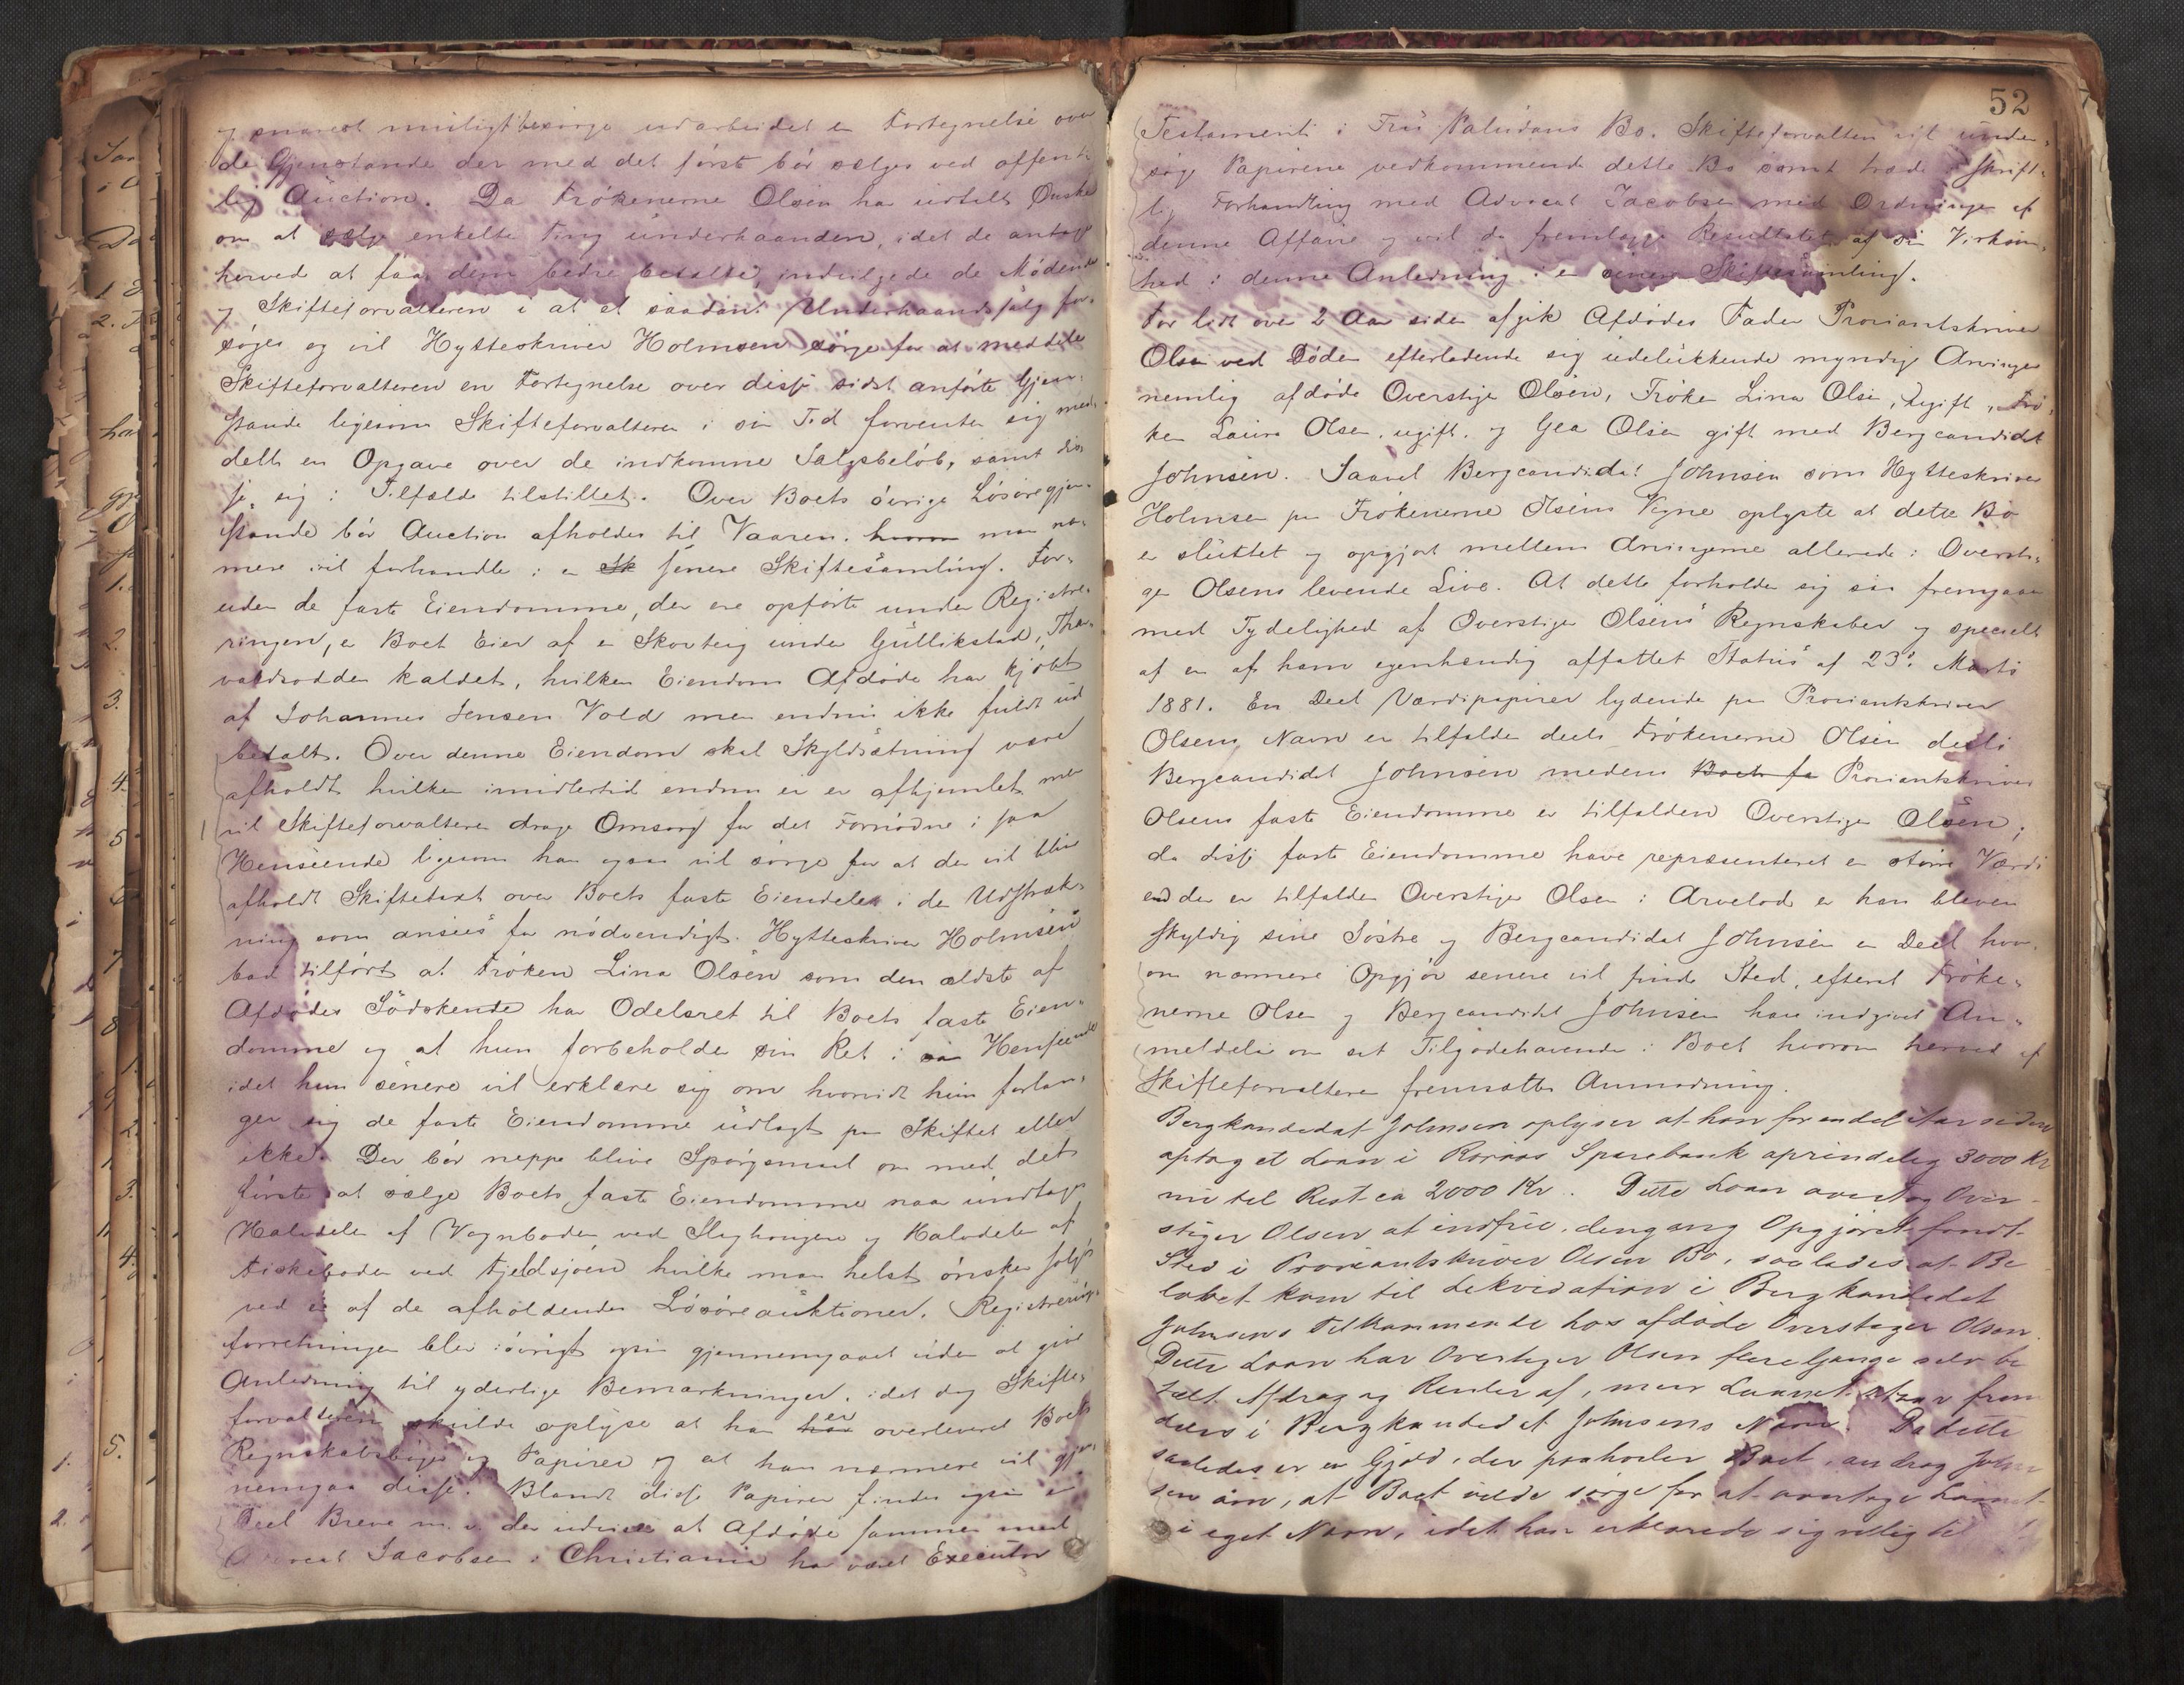 og snarest muligt besørge udarbeidet en Fortegnelse over
de Gjenstande der med det først bør sælges ved offent-
lig Auction. Da Frøkenerne Olsen har udtalt Ønske
om at sælge enkelte Ting underhaanden, idet de antage
herved at faa dem bedre betalte, indvilgede de Mødende
og Skifteforvalteren i at et saadant Underhaandssalg for-
søges og vil Hytteskriver Holmsen sørge for at meddele
Skifteforvalteren en Fortegnelse over disse sidst anførte Gjen-
stande ligesom Skifteforvalteren i sin Tid forventer sig med-
delt en Opgave over de indkomne Salgsbeløb, samt dis-
se sig i Tilfælde tilstillet. Over Boets øvrige Løsøregjen-
stande bør Auction afholdes til Vaaren. hvorom man næ-
mere vil forhandle i en Sk senere Skiftesamling. For-
uden de faste Eiendomme, der ere opførte under Registre-
ringen, er Boet Eier af en Skovteig under Gullikstad, Thor-
valdsodden kaldet, hvilken Eiendom Afdøde har kjøbt
af Johannes Jensen Vold men endnu ikke fuldt ud
betalt. Over denne Eiendom skal Skyldsætning være
afholdt hvilken imidlertid endnu er er afhjemlet men
vil Skifteforvalteren drage Omsorg for det Fornødne i saa
Henseende ligesom han ogsaa vil sørge for at der vil blive
afholdt Skiftetaxt over Boets faste Eiendele i den Udstræk-
ning som ansees for nødvendigt. Hytteskriver Holmsen
bad tilført at Frøken Lina Olsen som den ældste af
Afdødes Södskende har Odelsret til Boets faste Eien-
domme og at hun forbeholder sin Ret i saa Henseende
idet hun senere vil erklære sig om hvorvidt hun forlan-
ger sig de faste Eiendomme udlagt paa Skiftet eller
ikke. Der bør neppe blive Spørgsmaal om med det
første at sælge Boets faste Eiendomme naar undtages
Halvdelen af Vognboden ved og Halvdelen af
Fiskeboden ved Fjeldsjøen hvilke man helst ønsker solgt
ved en af de afholdendes Løsøreauktioner. Registrerings-
forretningen blev iøvrigt ogsaa gjennemgaaet uden at give
Anledning til yderlige Bemærkninger, idet dog Skifte-
forvalteren skulde oplyse at han har er overleveret Boets
Regnskabsbøger og Papirer og at han nærmere vil gjen-
nemgaa disse. Blandt disse Papirer findes ogsaa en
Deel Breve m. v. der udvise at Afdøde sammen med
Advocat Jacobsen i Christiania har været Executor
52
Testamenti i Fru Paludans Bo. Skifteforvalteren vil under-
søge Papirerne vedkommende dette Bo samt træde i skrift-
lig Forhandling med Advocat Jacobsen med Ordningen af
denne Affaire og vil da fremlægge Resultatet af sin Virksom-
hed i denne Anledning i en senere Skiftesamling.
For lidt over 2 Aar siden afgik Afdødes Fader Proviantskriver
Olsen ved Døden efterladende sig udelukkende myndige Arvinger
nemlig afdøde Overstiger Olsen, Frøken Lina Olsen, ugift, Frø-
ken Laura Olsen, ugift, og Gea Olsen gift med Bergcandidat
Johnsen. Saavel Bergcandidat Johnsen som Hytteskriver
Holmsen paa Frøkenerne Olsens Vegne oplyste at dette Bo
er sluttet og opgjort mellem Arvingerne allerede i Oversti-
ger Olsens levende Live. At dette forholder sig saa fremgaar
med Tydelighed af Overstiger Olsens Regnskaber og specielt
af en af ham egenhændig affattet Status af 23de Marts
1881. En Deel Værdipapirer lydende paa Proviantskriver
Olsens Navn er tilfalden deels Frøkenerne Olsen deels
Bergcandidat Johnsen medens Boets fa Proviantskriver
Olsens faste Eiendomme er tilfalden Overstiger Olsen;
da disse faste Eiendomme have repræsenteret en større Værdi
end der er tilfalden Overstiger Olsen i Arvelod er han bleven
skyldig sine Søstre og Bergcandidat Johnsen en Deel hvor-
om nærmere Opgjør senere vil finde Sted, efterat Frøke-
nerne Olsen og Bergcandidat Johnsen have indgivet An-
meldelse om sit Tilgodehavende i Boet hvorom herved af
Skifteforvalteren fremsættes Anmodning.
Bergkandidat Johnsen oplyser at han for endel Aar siden
optog et Laan i Røraas Sparebank oprindelig 3000 Kr
nu til Rest ca 2000 Kr. Dette Laan overtog Over-
stiger Olsen at indfrie, dengang Opgjøret fandt
Sted i Proviantskriver Olsen Bo, saaledes at Be-
løbet kom til Likvidation i Bergkandidat
Johnsens Tilkommende hos afdøde Overstiger Olsen.
Dette Laan har Overstiger Olsen flere Gange selv be-
talt Afdrag og Renter af, men Laanet staar frem-
deles i Bergkandidat Johnsens Navn. Da dette
saaledes er en Gjæld, der paahviler Boet, androg John-
sen om, at Boet vilde sørge for at overtage Laanet
i eget Navn, idet han erklærede sig villig til